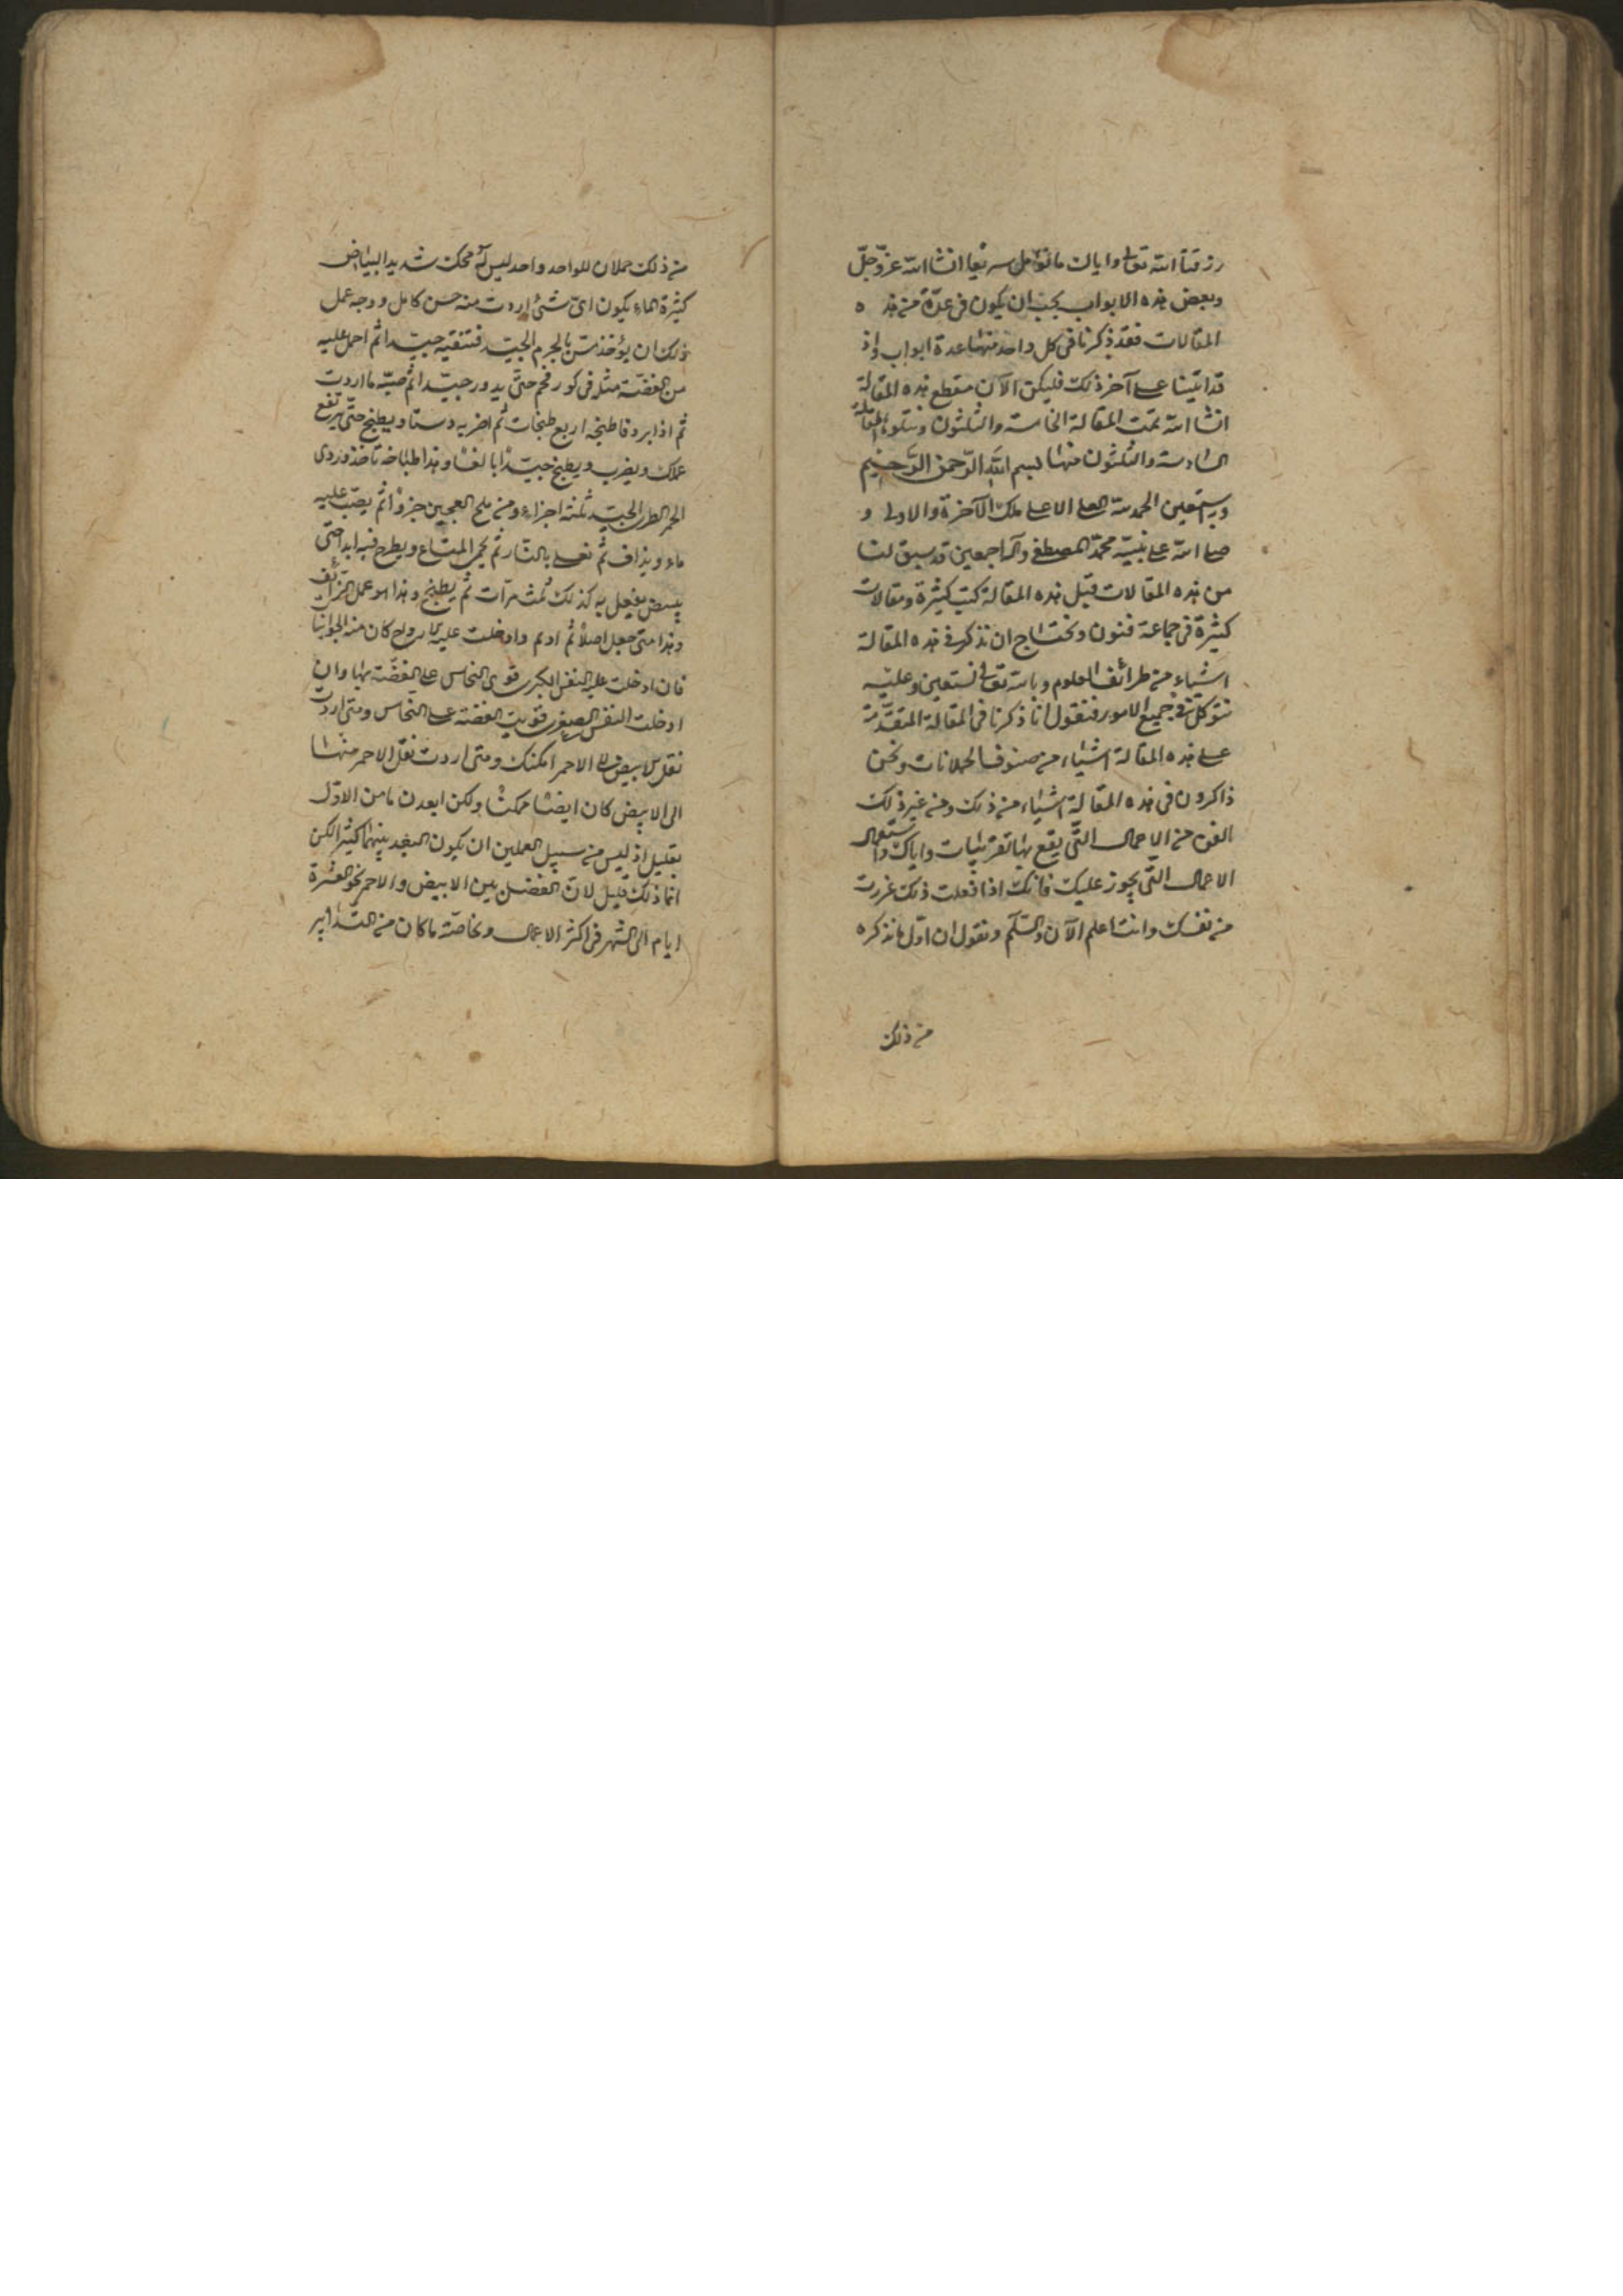 رزقنا الله تعالى واياك ما نؤمل سريعا انشا الله عز وجلّ
وبعض هذه الابواب يجب ان يكون فى عدّة من هذه
المقالات فقد ذكرنا فى كل واحد منها عدة ابواب واذ
قد اتينا على آخر ذلك فليكن الآن مقطع هذه المقالة
انشا الله تمت المقالة الخامسة والثلثون ونتلوه المقالة
السادسة والثلثون منها بسم الله الرّحمن الرّحيم
وبه نستعين الحمد لله العلى الاعلى ملك الآخرة والاولى و
صلى الله على نبيّه محمّد المصطفى وآله اجمعين قد سبق لنا
من هذه المقالات قبل هذه المقالة كتب كثيرة ومقالات
كثيرة فى جماعة فنون ونحتاج ان نذكر فى هذه المقالة
اشياء من طرائف العلوم وبالله تعالى نستعين وعليه
نتوكل فى جميع الامور فنقول انا ذكرنا فى المقالة المتقدّمة
على هذه المقالة اشياء من صنوف الحملانات ونحن
ذاكرون فى هذه المقالة اشياء من ذلك ومن غير ذلك
الفن من الاعمال التّى يقع بها تقريبات واياك واستعمال
الاعمال التّى يجوز عليك فانك اذا فعلت ذلك غررت
من نفسك وانت اعلم الآن والسّلم ونقول ان اوّل ما نذكره
من ذلك
من ذلك حملان للواحد واحد ليس له محك شديد البياض
كثيرة الماء يكون اىّ شئ اردت منه حسن كامل ووجه عمل
ذلك ان يؤخذ بالجرم الجيّد فتنقيه جيّدا ثم احمل عليه
من الفضّة مثله فى كور فحم حتّى يدور جيّدا ثم صبّه ما اردت
ثم اذا برد فاطبخه اربع طبخات ثم اضربه دستا ويطبخ حتّى يرتفع
عملك ويضرب ويطبخ جيّدا بالغا وهذا طباخه تاخذ دردى
الخمر الطرى الجيّد ثلثة اجزاء ومن ملح العجين جزوا ثم يصبّ عليه
ماء ويذاف ثم تغلى بالنّار ثم يحمى المتاع ويطرح فيه ابدا حتّى
يبيض يفعل به كذلك ثلث مرّات ثم يطبخ وهذا هو عمل
وهذا متى جعل اصلا ثم ادم وادخلت عليه الارواح كان منه
فان ادخلت عليه النفس الكبرى قوى النحاس على الفضّة بها وان
ادخلت النفس الصغرى قويت الفضة على النحاس ومتى اردت
نقل الابيض الى الاحمر امكنك ومتى اردت نقل الاحمر منها
الى الابيض كان ايضا ممكنا ولكن ابعد من الاوّل
بقليل اذ ليس من سبيل العملين ان يكون البعد بينهما كثيرا لكن
انما ذلك قليل لانّ الفضل بين الابيض والاحمر نحو العشرة
ايام الى الشهر فى اكثر الاعمال وبخاصّة ما كان من التدابير